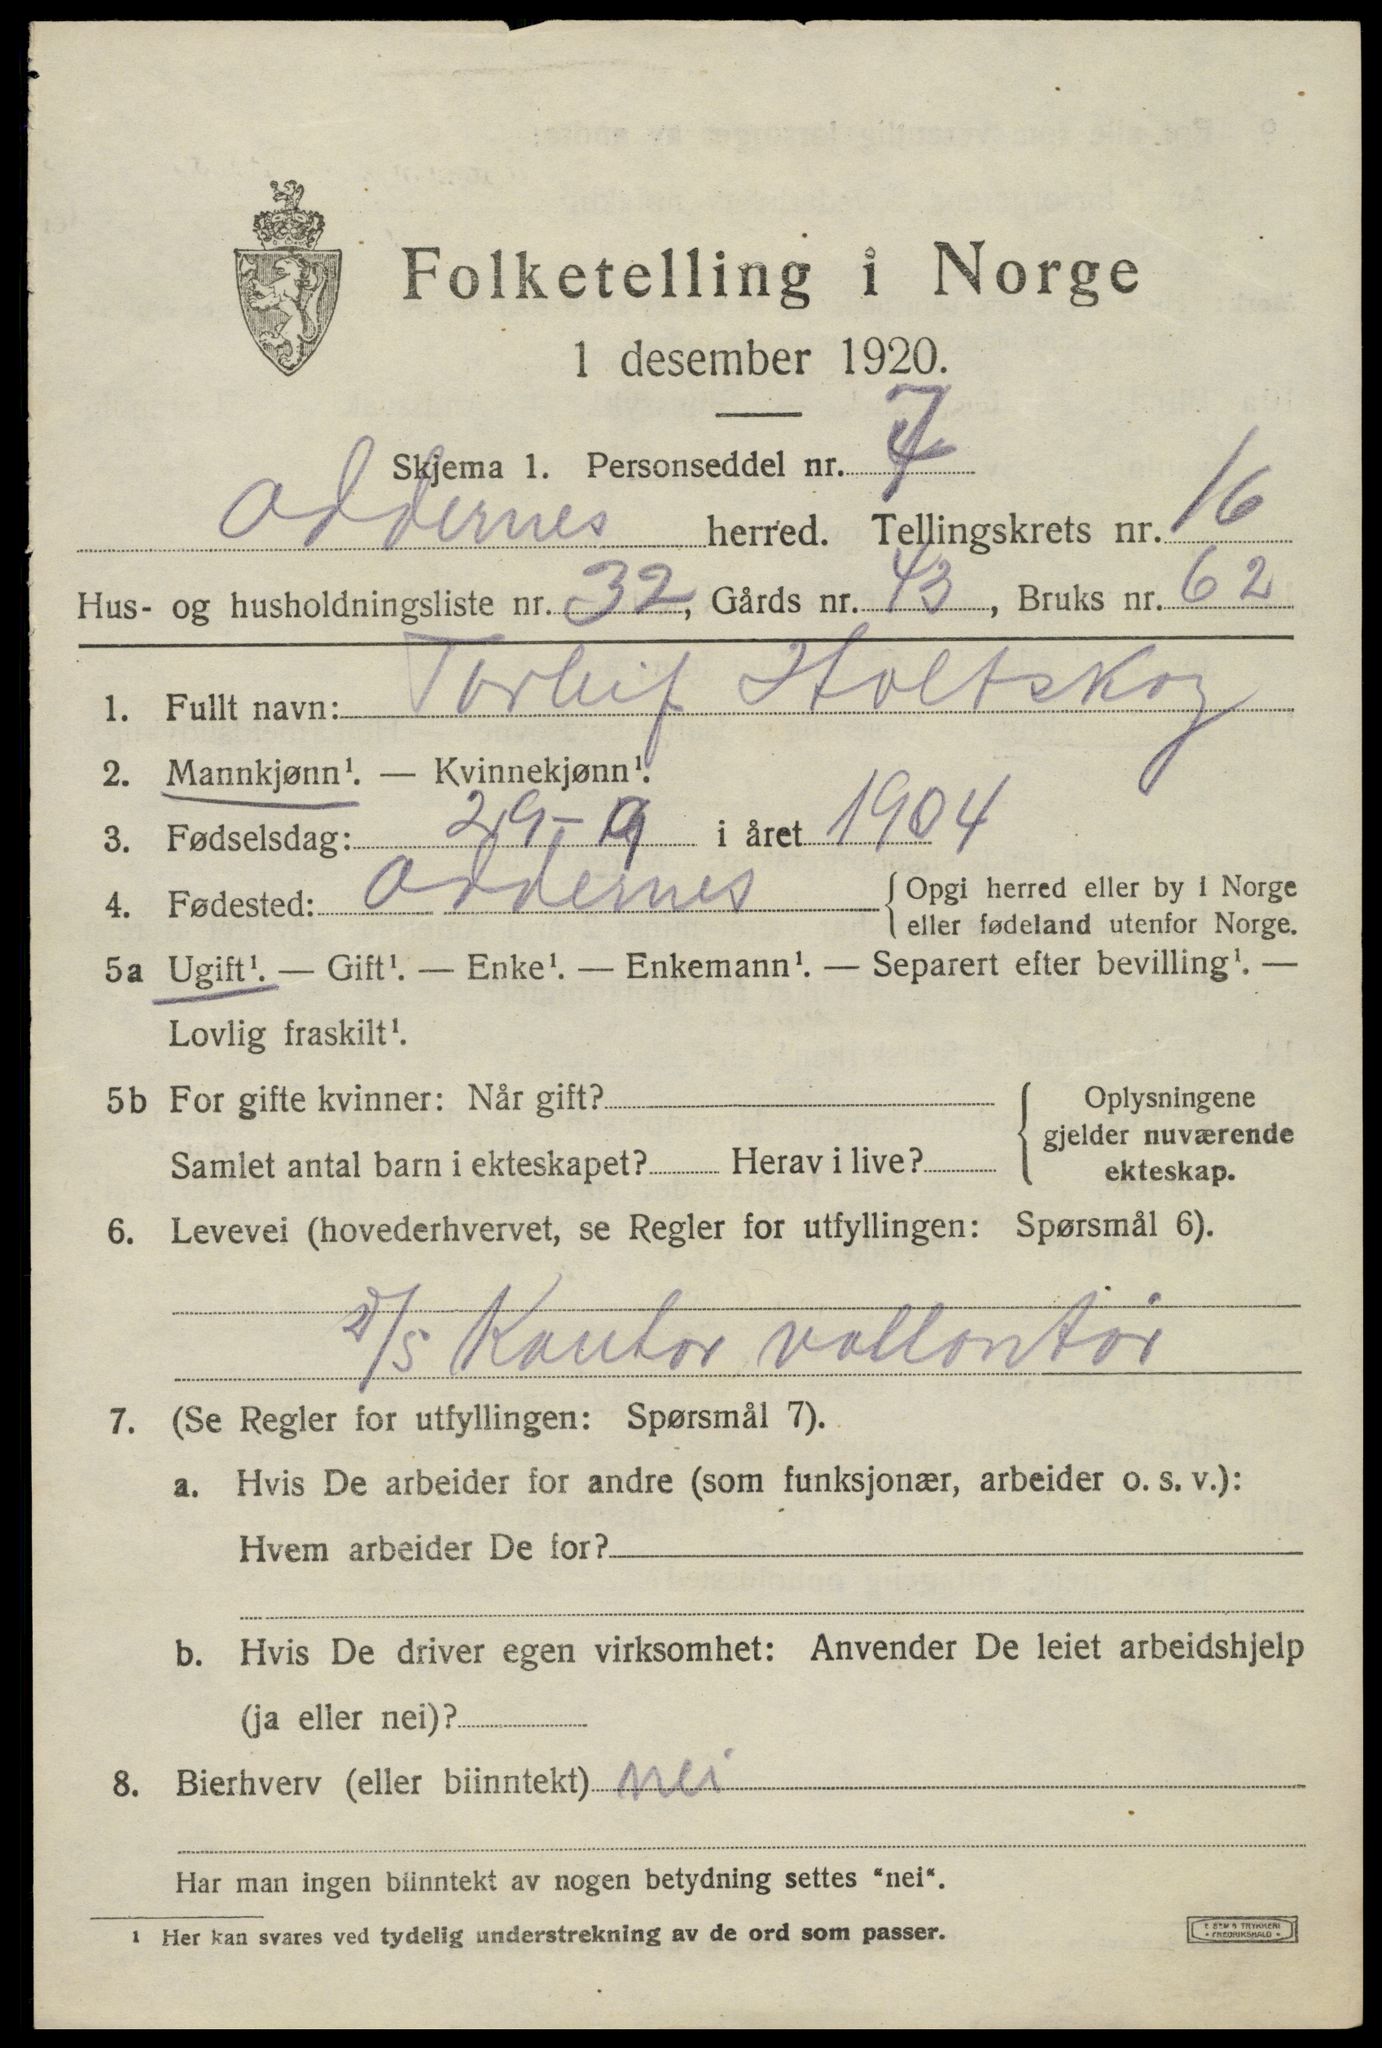 Folketelling i Norge
1 desember 1920.
Skjema 1. Personseddel nr. 7
Oddernes herred. Tellingskrets nr. 16
Hus- og husholdningsliste nr. 32, Gårds nr. 43, Bruks nr. 62
1. Fullt navn: Torleif Holtskog
2. Mannkjønn¹. — Kvinnekjønn¹.
3. Fødselsdag: 29-9 i året 1904
4. Fødested: Oddernes { Opgi herred eller by i Norge
eller fødeland utenfor Norge.
5a Ugift¹. — Gift¹. — Enke¹. — Enkemann¹. — Separert efter bevilling¹. —
Lovlig fraskilt¹.
5b For gifte kvinner: Når gift? { Oplysningene
gjelder nuværende
Samlet antal barn i ekteskapet? Herav i live? ekteskap.
6. Levevei (hovederhvervet, se Regler for utfyllingen: Spørsmål 6).
Kontor vollontør
7. (Se Regler for utfyllingen: Spørsmål 7).
a. Hvis De arbeider for andre (som funksjonær, arbeider o. s. v.):
Hvem arbeider De for?
b. Hvis De driver egen virksomhet: Anvender De leiet arbeidshjelp
(ja eller nei)?
8. Bierhverv (eller biinntekt) nei
Har man ingen biinntekt av nogen betydning settes "nei".
¹ Her kan svares ved tydelig understrekning av de ord som passer.
TRYKKERI
FREDRIKSHALD